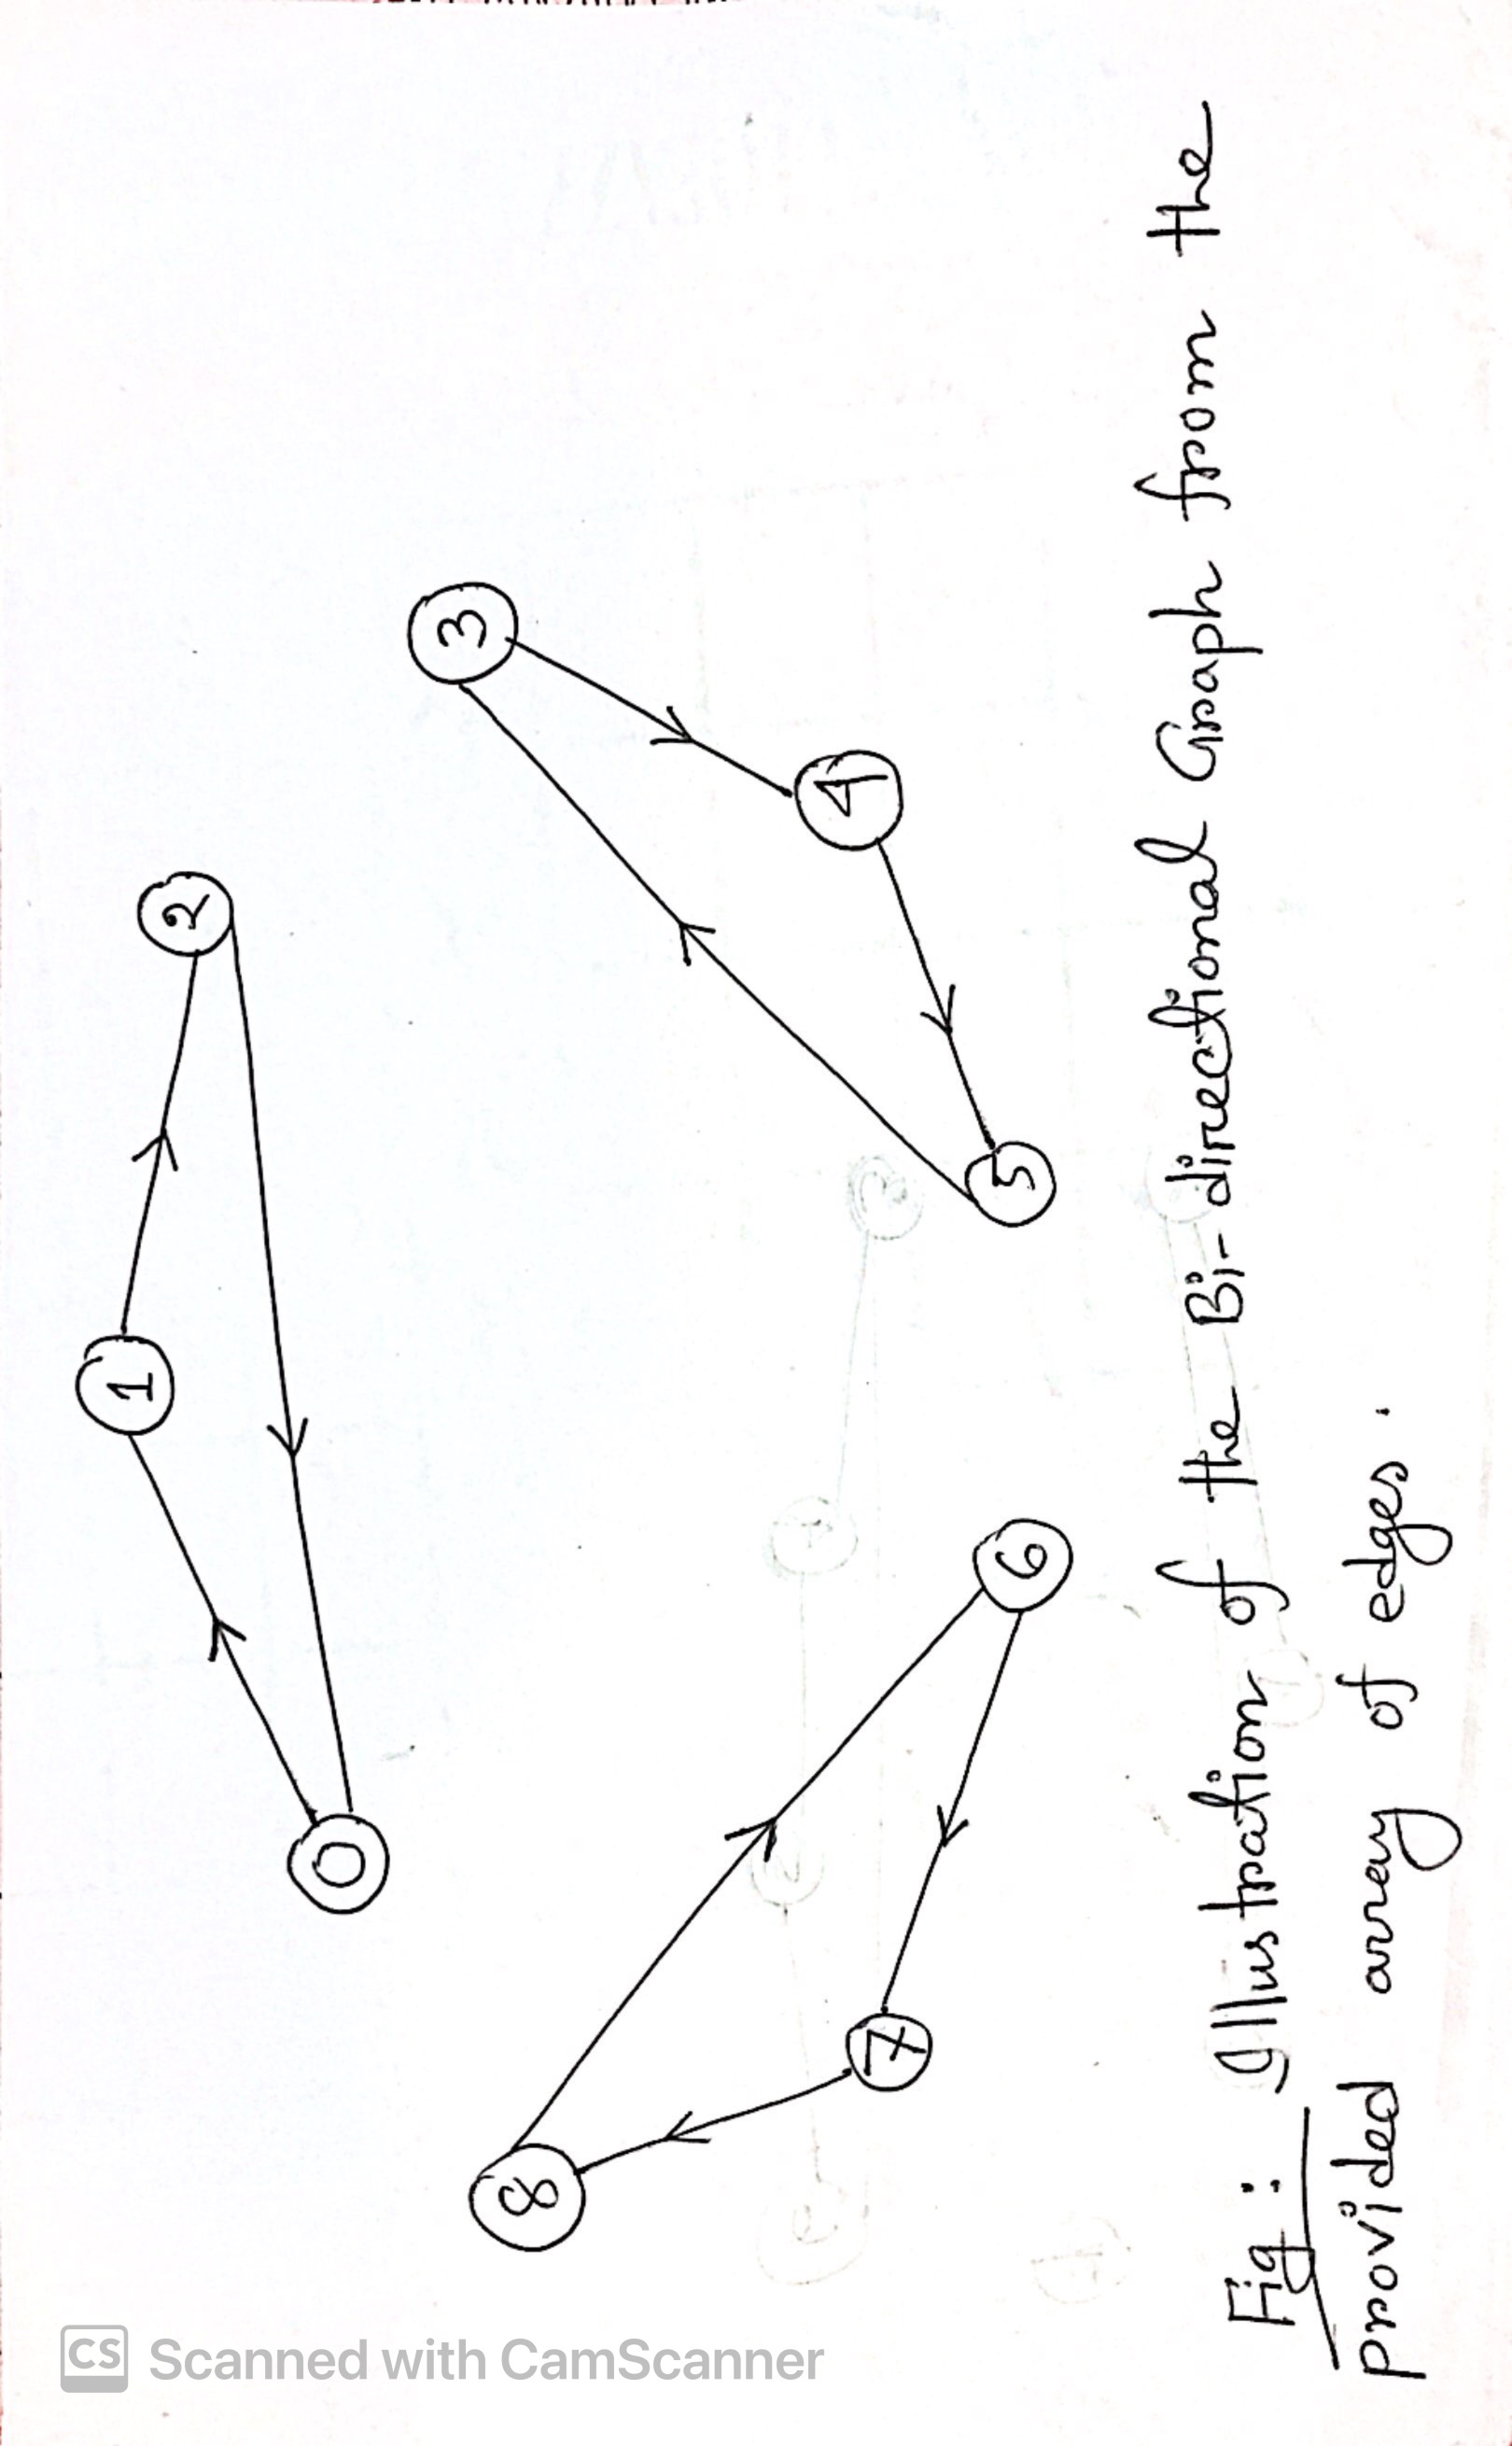 1
2
0
3
4
5
8
7
6
Fig : Illustration of the Bi-directional Graph from the
provided array of edges.
CS Scanned with CamScanner